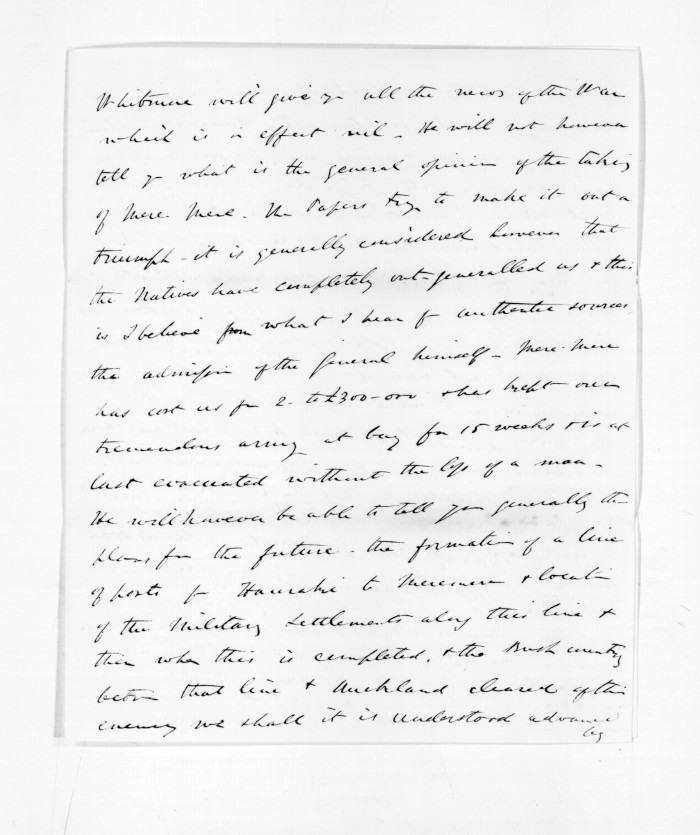 Whitmore will give yr all the news of the War
which is in effect nil - He will not however
tell yr what is the general opinion of the taking
of Mere Mere. The Papers try to make it out a
triumph - it is generally considered however that
the Natives have completely out-generalled us & this
is I believe from what I hear fr authentic sources,
the admission of the General himself - Mere-Mere
has cost us fm 2- to £300-000 & has kept our
tremendous army at bay for 15 weeks & is at
last evacuated without the loss of a man -
He will however be able to tell you generally the
plans for the future - the formation of a line
of posts fr Hauraki to Meremere & locatn
of the Military Settlements along this line &
then when this is completed, & the Bush country
betwn that line & Auckland cleared of the
enemy we shall it is understood advance
by